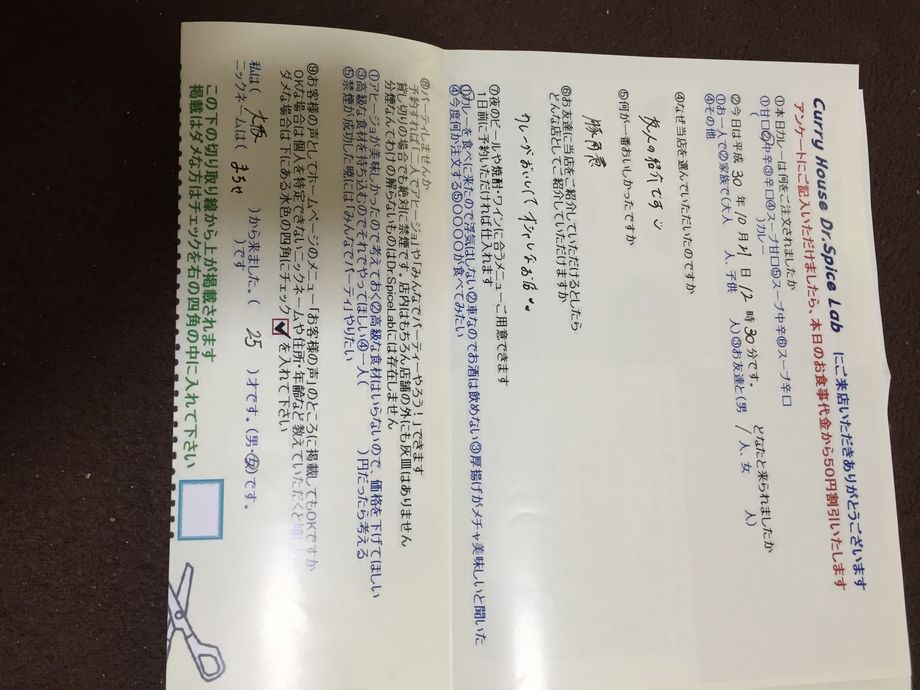 Curry House Dr.Spice Lab にご来店いただきありがとうございます
アンケートにご記入いただけましたら、本日のお食事代金から50円割引いたします
①本日カレーは何をご注文されましたか
①甘口②中辛③辛口④スープ甘口⑤スープ中辛⑥スープ辛口
( )カレー
②今日は平成 30 年 10 月 21 日 12 時 30 分です。 どなたと来られましたか
①お一人で②ご家族で(大人 人、子供 人)③お友達と(男 1 人、女 人)
④その他
④なぜ当店を選んでいただいたのですか
友人の紹介です
⑤何が一番おいしかったですか
豚角煮
⑥お友達に当店をご紹介していただけるとしたら
どんな店としてご紹介していただけますか
カレーがおいしくてオシャレなお店
⑦夜のビールや焼酎・ワインに合うメニューご用意できます
1日前に予約しいただければ仕入れます
①カレーを食べに来たので浮気はしない②車なのでお酒は飲めない③厚揚げがメチャ美味しいと聞いた
④今度何か注文する⑤〇〇〇〇が食べてみたい
⑧パーティしませんか
予約すれば「二人でアヒージョ」や「みんなでパーティーやろう！」できます
貸し切りの場合でも絶対に禁煙です。店内はもちろん店舗の外にも灰皿はありません
分煙なんてわけの解らないものはDr.SpiceLabには存在しません
①アヒージョが美味しかったので考えておく②高級な食材はいらないので、価格を下げてほしい
③高級な食材を持ち込むのでそれでやってほしい④一人( )円だったら考える
⑤禁煙が成功した晩には「みんなでパーティ」やりたい
⑨お客様の声としてホームページのメニュー「お客様の声」のところに掲載してもOKですか
OKな場合は個人を特定できないニックネームや住所・年齢など教えていただくと
ダメな場合は下にある水色の四角にチェック✔を入れて下さい
私は( 大阪 )から来ました。( 25 )才です。(男・女)です。
ニックネームは( まちせ )です
この下の切り取り線から上が掲載されます
掲載はダメな方はチェックを右の四角の中に入れて下さい